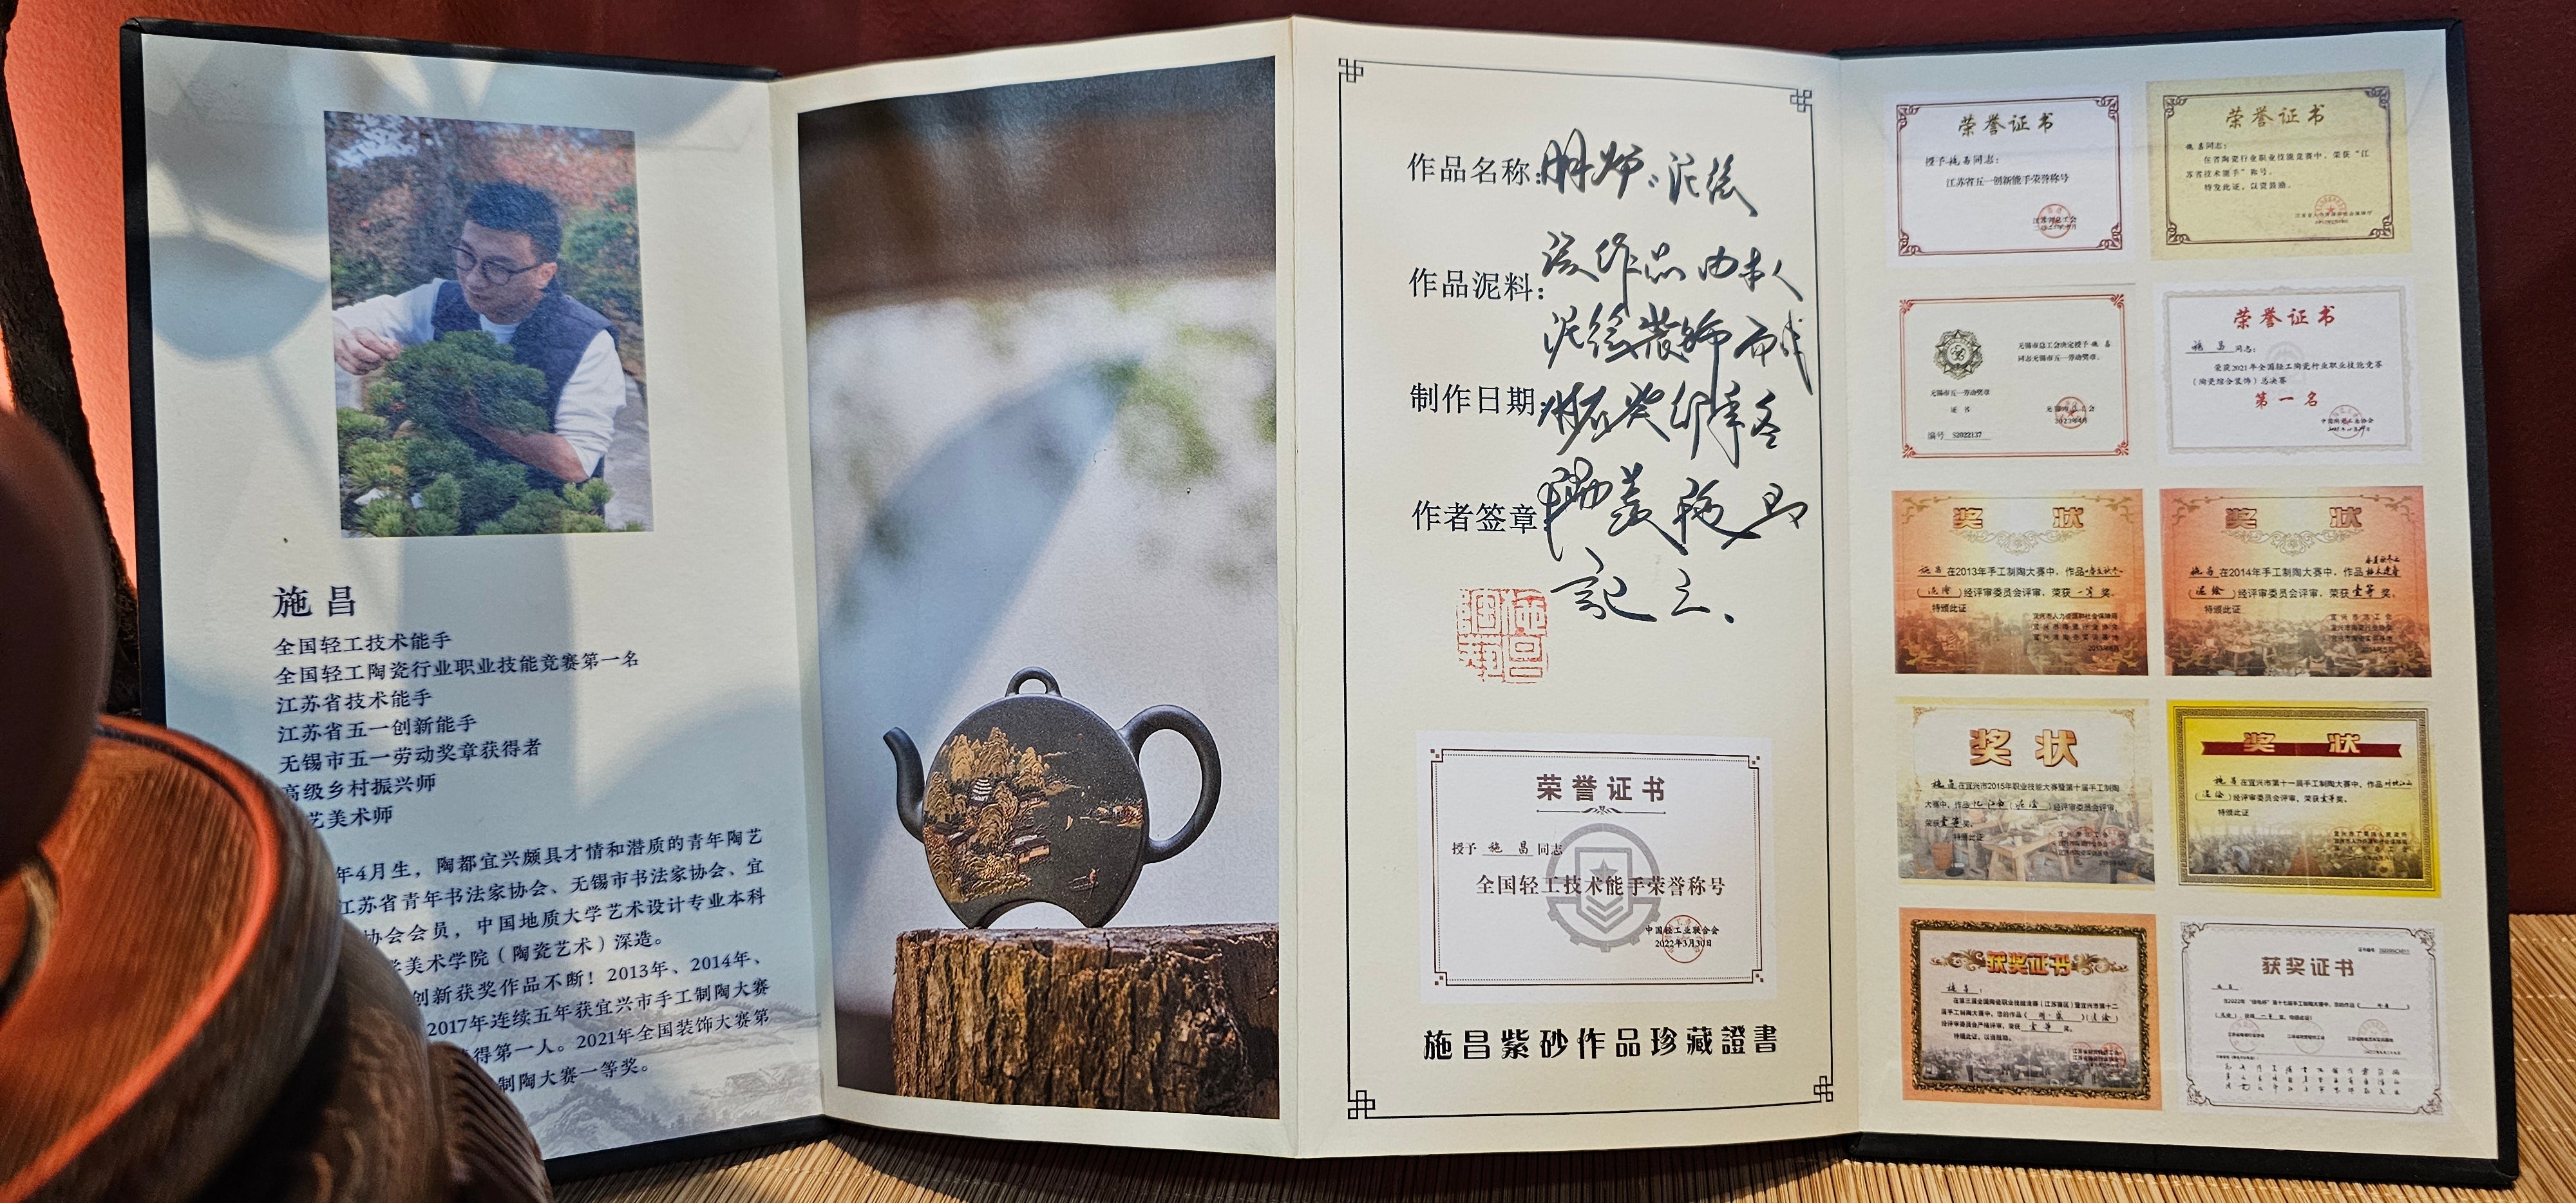 施昌
全国轻工技术能手
全国轻工陶瓷行业职业技能竞赛第一名
江苏省技术能手
江苏省五一创新能手
无锡市五一劳动奖章获得者
高级乡村振兴师
艺美术师
年4月生，陶都宜兴颇具才情和潜质的青年陶艺
江苏省青年书法家协会、无锡市书法家协会、宜
协会会员，中国地质大学艺术设计专业本科
美术学院（陶瓷艺术）深造。
创新获奖作品不断！2013年、2014年、
2017年连续五年获宜兴市手工制陶大赛
得第一人。2021年全国装饰大赛第
制陶大赛一等奖。
作品名称：
泥绘
作品泥料：
该作品由本人
泥绘装饰而成
制作日期：
癸卯年冬
作者签章
施昌
记之、
荣誉证书
授予 施昌 同志
全国轻工技术能手荣誉称号
中国轻工业联合会
2022年3月30日
施昌紫砂作品珍藏證書
荣誉证书
授予施昌同志：
江苏省五一创新能手荣誉称号
江苏省总工会
荣誉证书
施昌同志：
在省陶瓷行业职业技能竞赛中，荣获“江
苏省技术能手”称号。
特发此证，以资鼓励。
无锡市总工会决定授予施昌
同志无锡市五一劳动奖章。
无锡市五一劳动奖章
证书
编号 S2022137
无锡市总工会
2023年4月
荣誉证书
施昌 同志：
荣获2021年全国轻工陶瓷行业职业技能竞赛
（陶瓷综合装饰）总决赛
第一名
中国轻工业联合会
奖状
施昌 在2013年手工制陶大赛中，作品
（泥绘）经评审委员会评审，荣获一等奖。
特颁此证
奖状
施昌 在2014年手工制陶大赛中，作品
（泥绘）经评审委员会评审，荣获壹等奖。
特颁此证
奖状
施昌 在宜兴市2015年职业技能大赛暨第十届手工制陶
大赛中，作品（泥绘）经评审委员会评审，
荣获壹等奖。
特颁此证
奖状
施昌 在宜兴市第十一届手工制陶大赛中，作品
（泥绘）经评审委员会评审，荣获壹等奖。
特颁此证
获奖证书
施昌：
在第三届全国陶瓷职业技能竞赛（江苏赛区）暨宜兴市第十二
届手工制陶大赛中，您的作品
经评审委员会严格评审，荣获 壹等 奖。
特颁此证，以资鼓励。
获奖证书